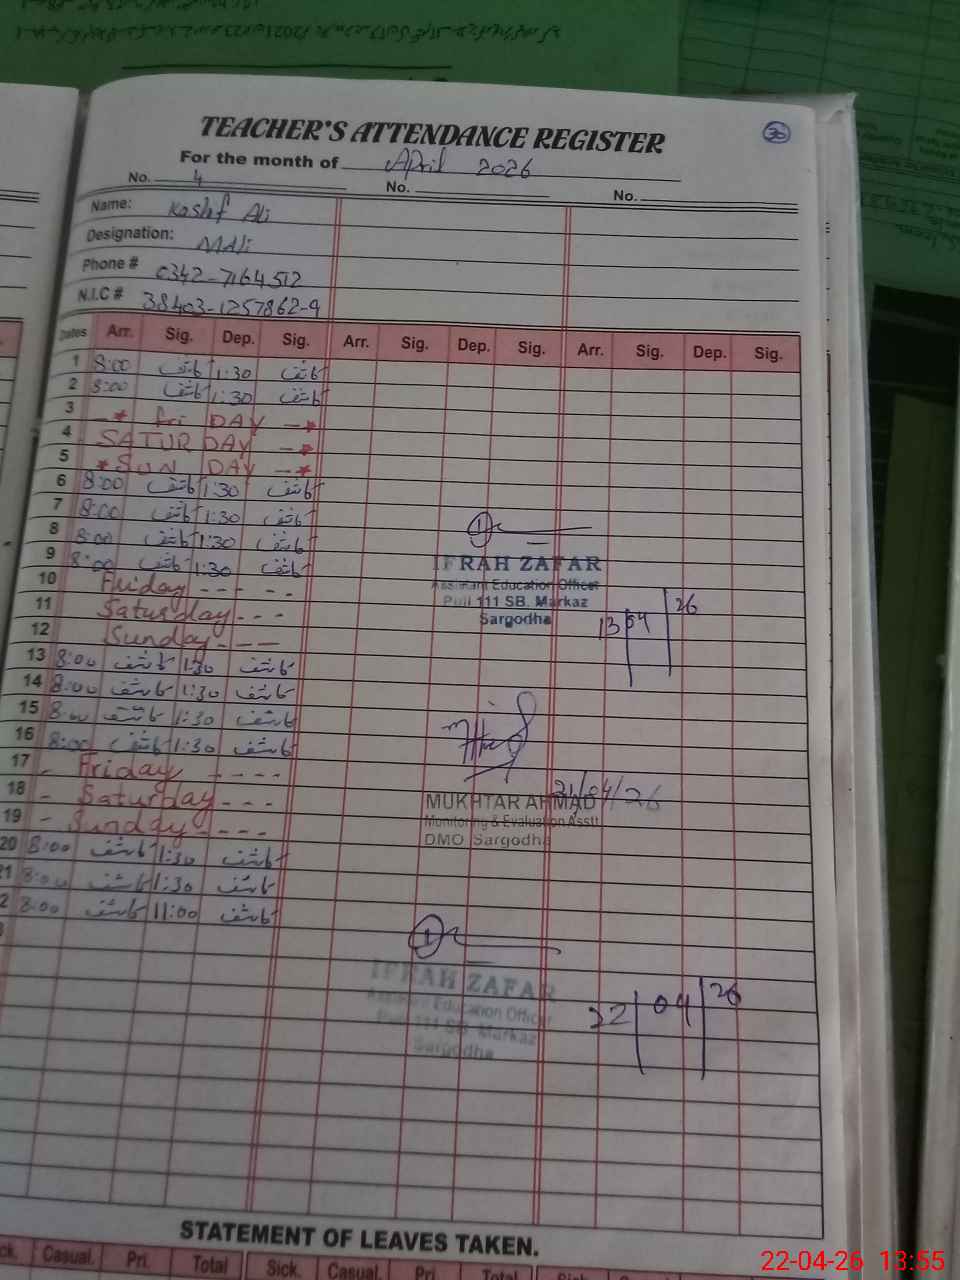 TEACHER'S ATTENDANCE REGISTER
30
For the month of April 2026
No. 4 No. No.
Name: Kashf Ali
Designation: MAli
Phone # 0342-7164512
N.I.C # 38403-1257862-9
Dates Arr. Sig. Dep. Sig. Arr. Sig. Dep. Sig. Arr. Sig. Dep. Sig.
1 8:00 کاشف 1:30 کاشف
2 8:00 کاشف 1:30 کاشف
3 * Fri DAY - *
4 SATUR DAY - *
5 * SUN DAY - *
6 8:00 کاشف 1:30 کاشف
7 8:00 کاشف 1:30 کاشف
8 8:00 کاشف 1:30 کاشف
9 8:00 کاشف 1:30 کاشف
10 Friday - - - - -
11 Saturday - - -
12 Sunday - - -
13 8:00 کاشف 1:30 کاشف
14 8:00 کاشف 1:30 کاشف
15 8:00 کاشف 1:30 کاشف
16 8:00 کاشف 1:30 کاشف
17 - Friday - - - -
18 - Saturday - - -
19 - Sunday - - - -
20 8:00 کاشف 1:30 کاشف
21 8:00 کاشف 1:30 کاشف
2 8:00 کاشف 11:00 کاشف
IFRAH ZAFAR
Assistant Education Officer
Pull 111 SB. Markaz
Sargodha
13 04 26
21/04/26
MUKHTAR AHMAD
Monitoring & Evaluation Asstt
DMO Sargodha
IFRAH ZAFAR
Assistant Education Officer
Pull 111 SB. Markaz
Sargodha
22 04 26
STATEMENT OF LEAVES TAKEN.
ck. Casual. Pri. Total Sick. Casual. Pri. Total
22-04-26 13:55